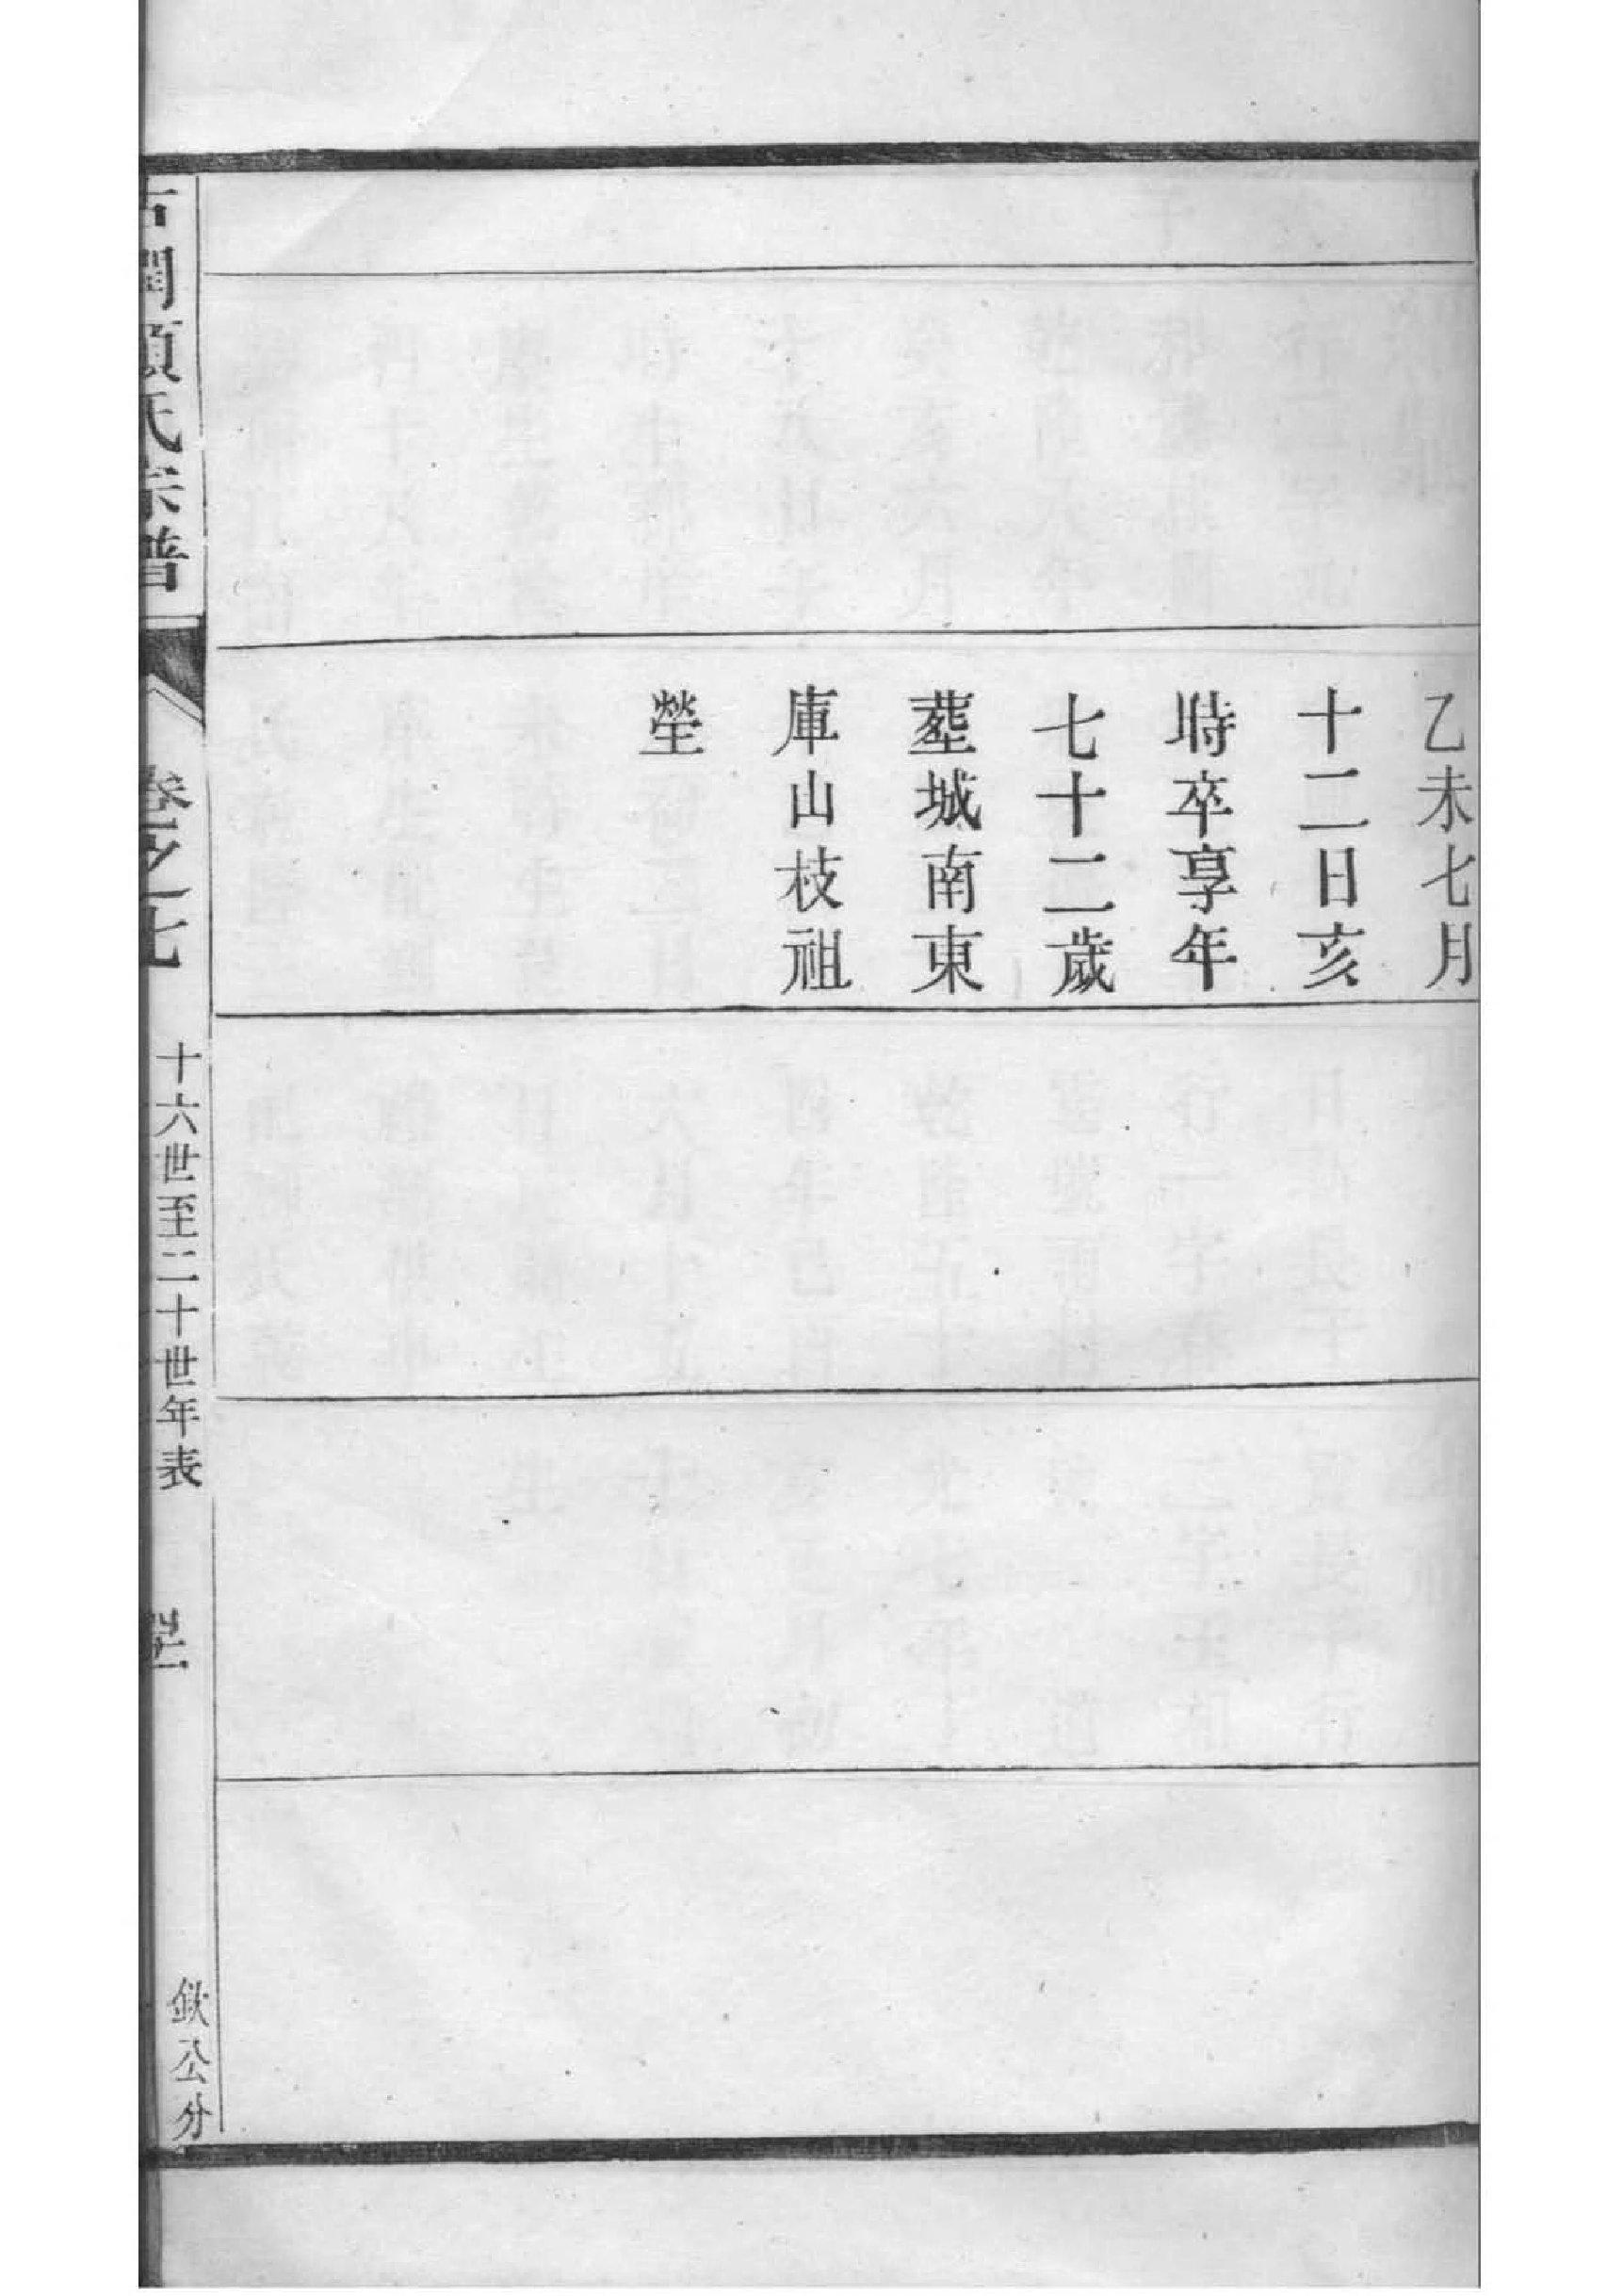 乙未七月
十二日亥
時卒享年
七十二歲
塟城南東
庫山枝祖
塋
古潤項氏宗譜
卷之七
十六世至二十世年表
欽公分